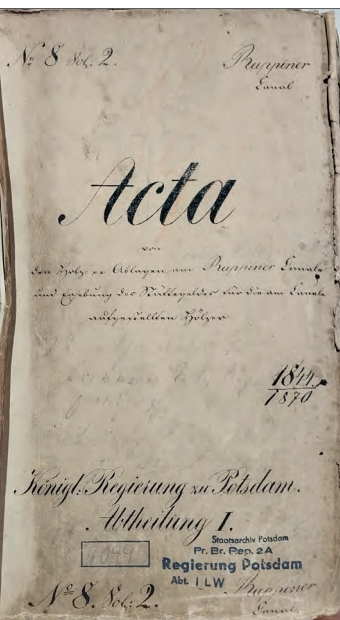 No 8 Vol. 2.
Ruppiner
Canal
Acta
von
den Holz pp Ablagen am Ruppiner Canale
und Erhebung der Stättegelder für die am Canale
aufgestellten Hölzer
1844.
1870
Königl: Regierung zu Potsdam.
Abtheilung I.
4049
Staatsarchiv Potsdam
Pr. Br. Rep. 2A
Regierung Potsdam
Abt. I LW
No 8. Vol: 2.
Ruppiner
Canal